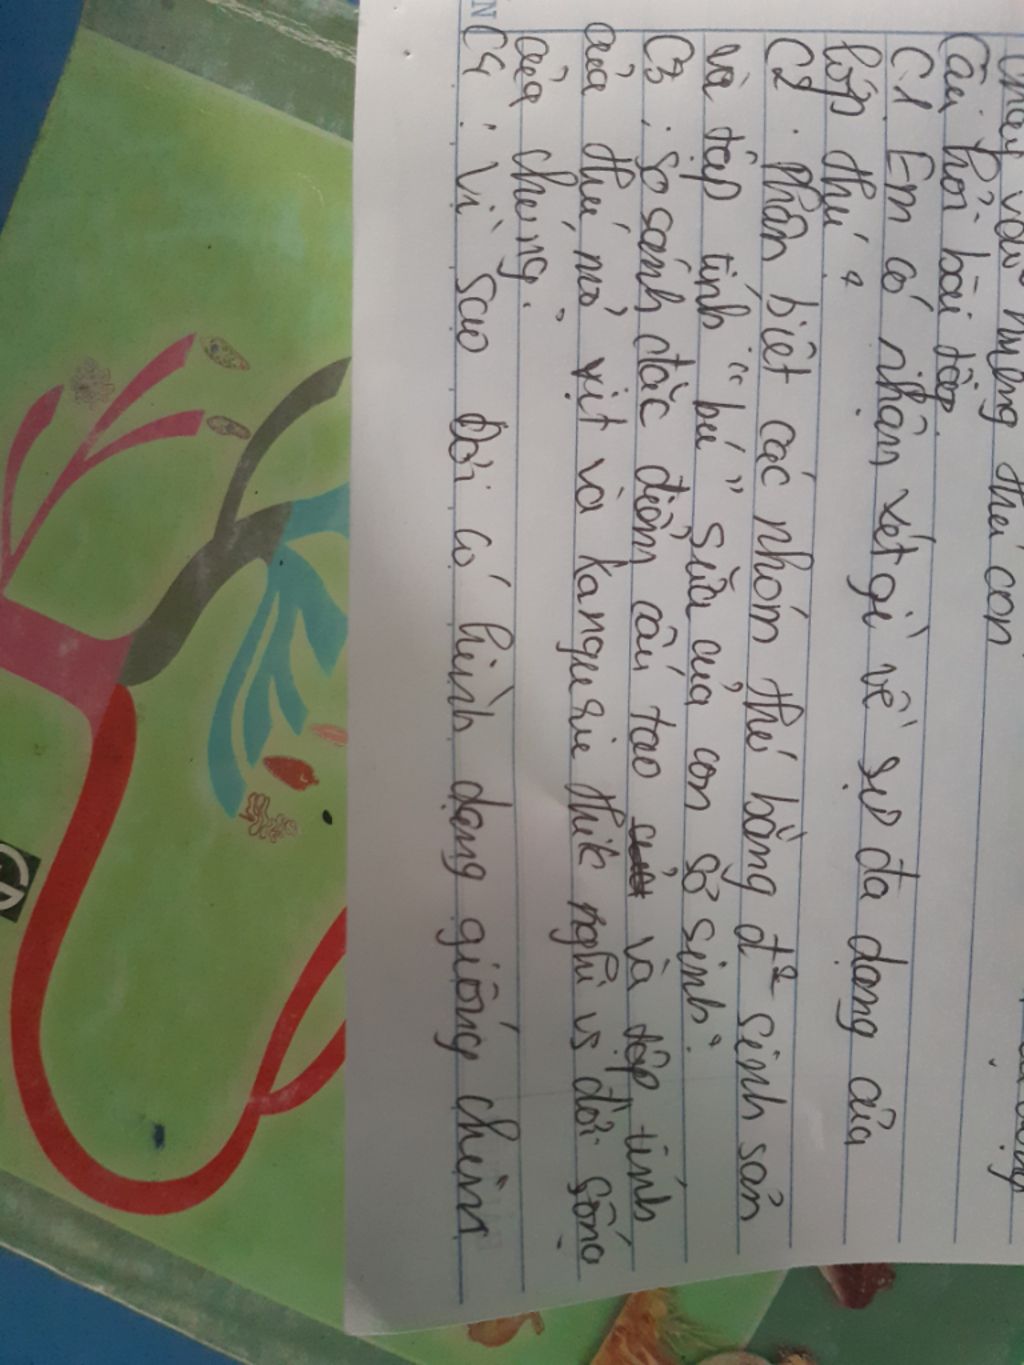 vào những thú con
Câu hỏi bài tập.
C1 Em có nhận xét gì về sự đa dạng của
lớp thú?
C2. Phân biệt các nhóm thú bằng đ² sinh sản
và tập tính "bú" sữa của con sơ sinh?
C3. So sánh đặc điểm cấu tạo và tập tính
của thú mỏ vịt và kanguru thik nghi vs đời sống
của chúng.
C4: Vì sao Dơi có hình dạng giống chim
N